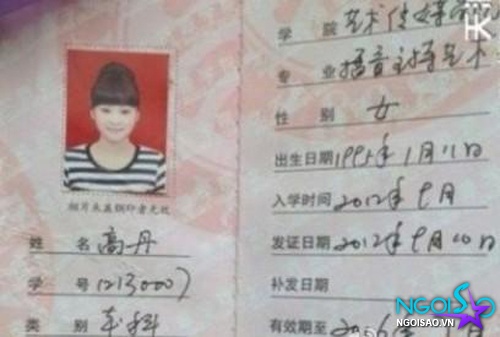 HK
相片未盖钢印者无效
姓 名 高丹
学 号 1213000
类 别 本科
学 院 艺术传媒学
专 业 播音主持艺术
性 别 女
出生日期 1995年1月11日
入学时间 2012年9月
发证日期 2012年9月10日
补发日期
有效期至 2016年 月
NGOISAO
NGOISAO.VN